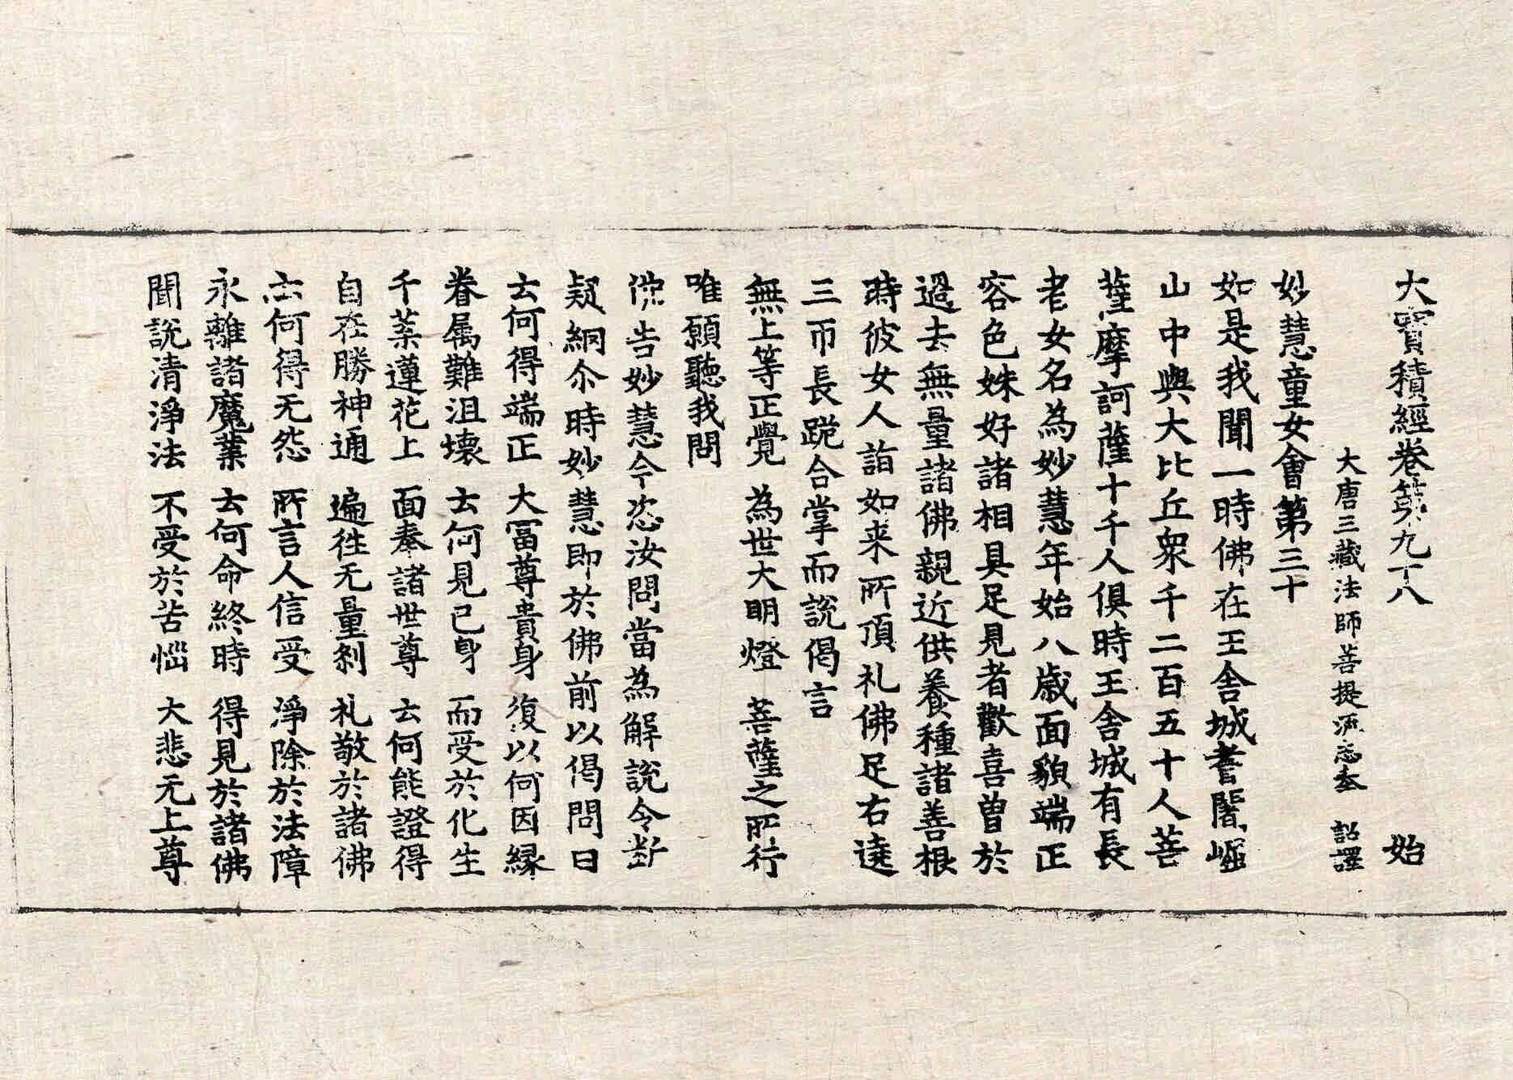 大寳積經卷第九十八　始
大唐三藏法師菩提流志奉　詔譯
妙慧童女會第三十
如是我聞一時佛在王舍城耆闍崛
山中與大比丘衆千二百五十人菩
薩摩訶薩十千人俱時王舍城有長
者女名為妙慧年始八歳面貌端正
容色姝好諸相具足見者歡喜曽於
過去無量諸佛親近供養種諸善根
時彼女人詣如来所頂礼佛足右遶
三帀長跪合掌而說偈言
無上等正覺　為世大明燈　菩薩之所行
唯願聽我問
佛告妙慧今恣汝問當為解說令断
疑網尒時妙慧即於佛前以偈問曰
云何得端正　大冨尊貴身　復以何因縁
眷属難沮壊　云何見已身　而受於化生
千葉蓮花上　面奉諸世尊　云何能證得
自在勝神通　遍往无量刹　礼敬於諸佛
云何得无怨　所言人信受　淨除於法障
永離諸魔業　云何命終時　得見於諸佛
聞說清淨法　不受於苦惱　大悲无上尊